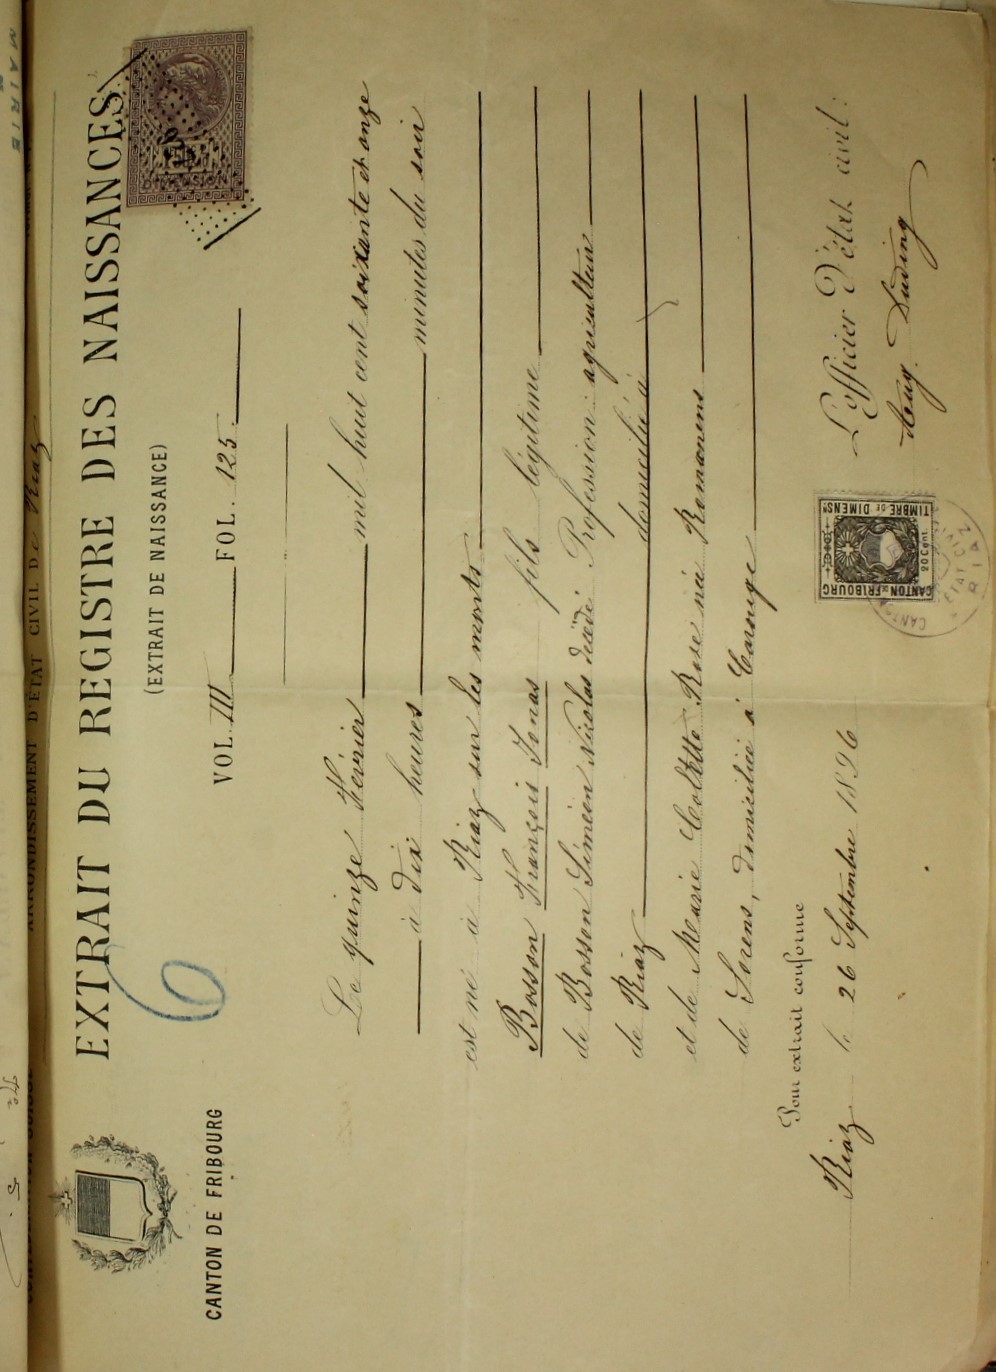 CONFÉDÉRATION SUISSE ARRONDISSEMENT D'ÉTAT CIVIL DE Riaz
EXTRAIT DU REGISTRE DES NAISSANCES
(EXTRAIT DE NAISSANCE)
CANTON DE FRIBOURG
6
VOL. III FOL. 125.
DIMENSION
Le quinze Février mil huit cent soixante et onze
à dix heures minutes du soir
est né à Riaz sur les monts
Bosson François Jonas fils légitime
de Bosson Siméon Nicolas décédé Profession: agriculteur
de Riaz domicilié à
et de Marie Colette Rose née Remanens
de Sorens, domiciliée à Carouge
Pour extrait conforme
Riaz le 26 Septembre 1896
L'officier d'état civil:
Aug. Suding
CANTON DE FRIBOURG
20 Cent.
TIMBRE DE DIMENSN
ETAT CIVIL
RIAZ
MAIRIE